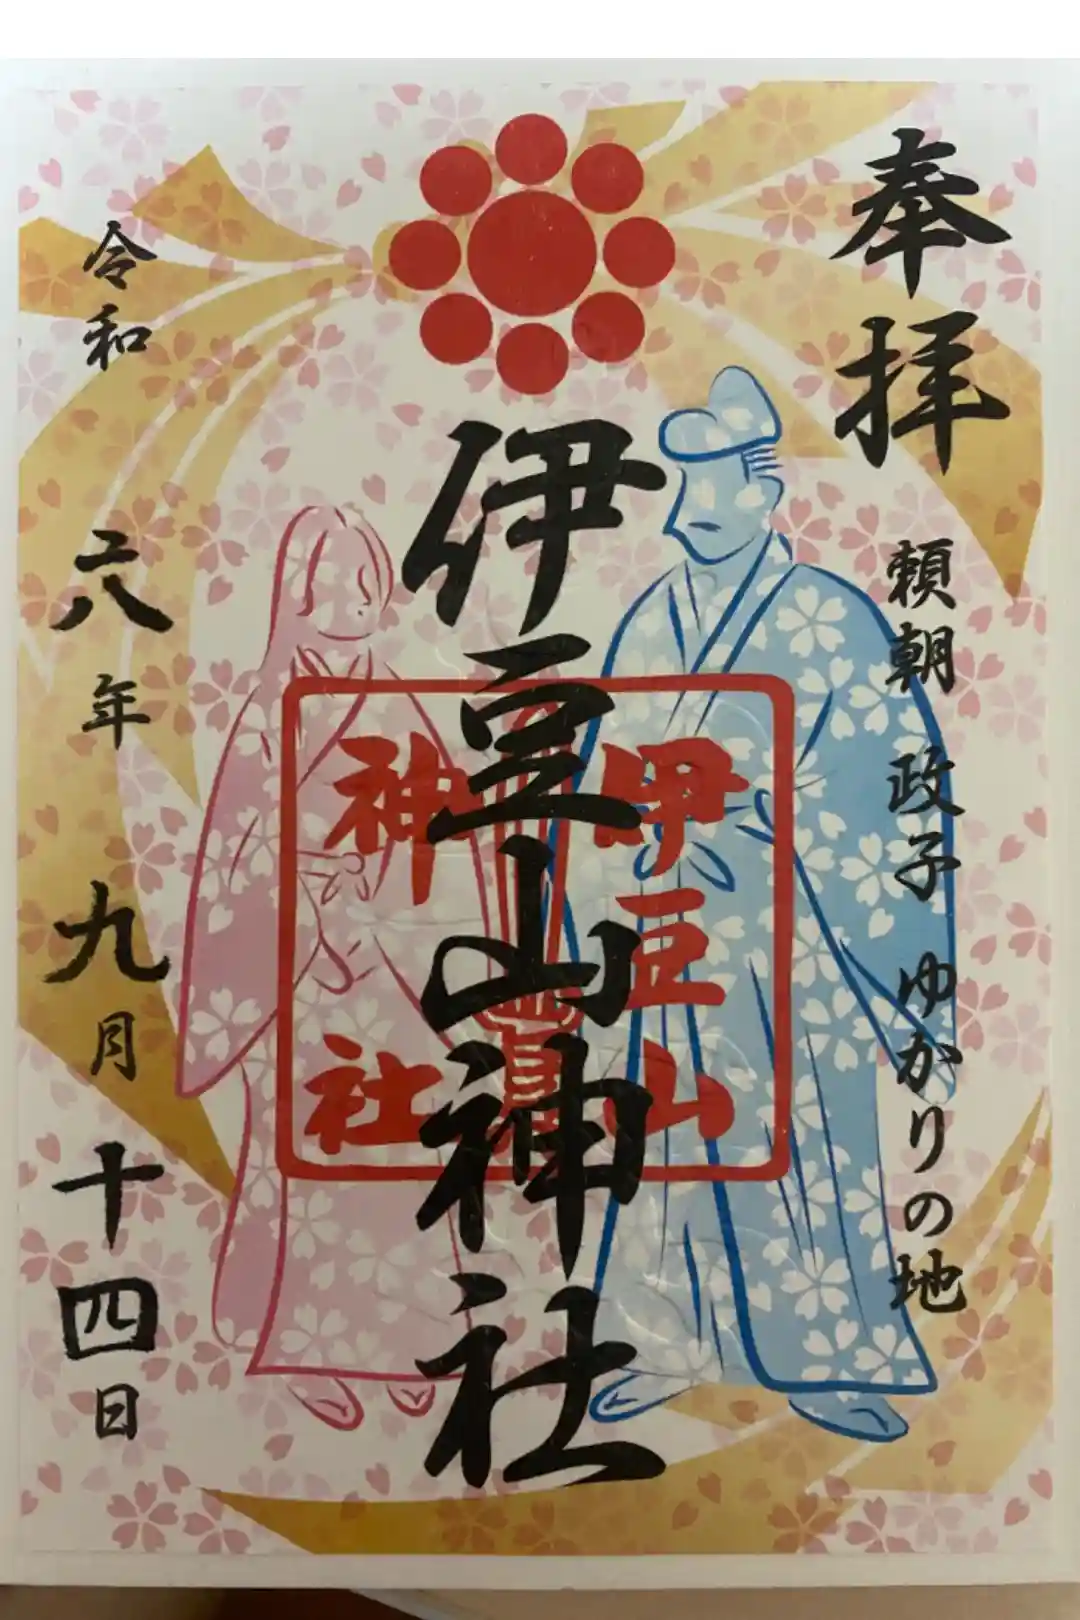 奉拝
頼朝 政子 ゆかりの地
伊豆山神社
伊豆山
神社
令和 六年 九月 十四日